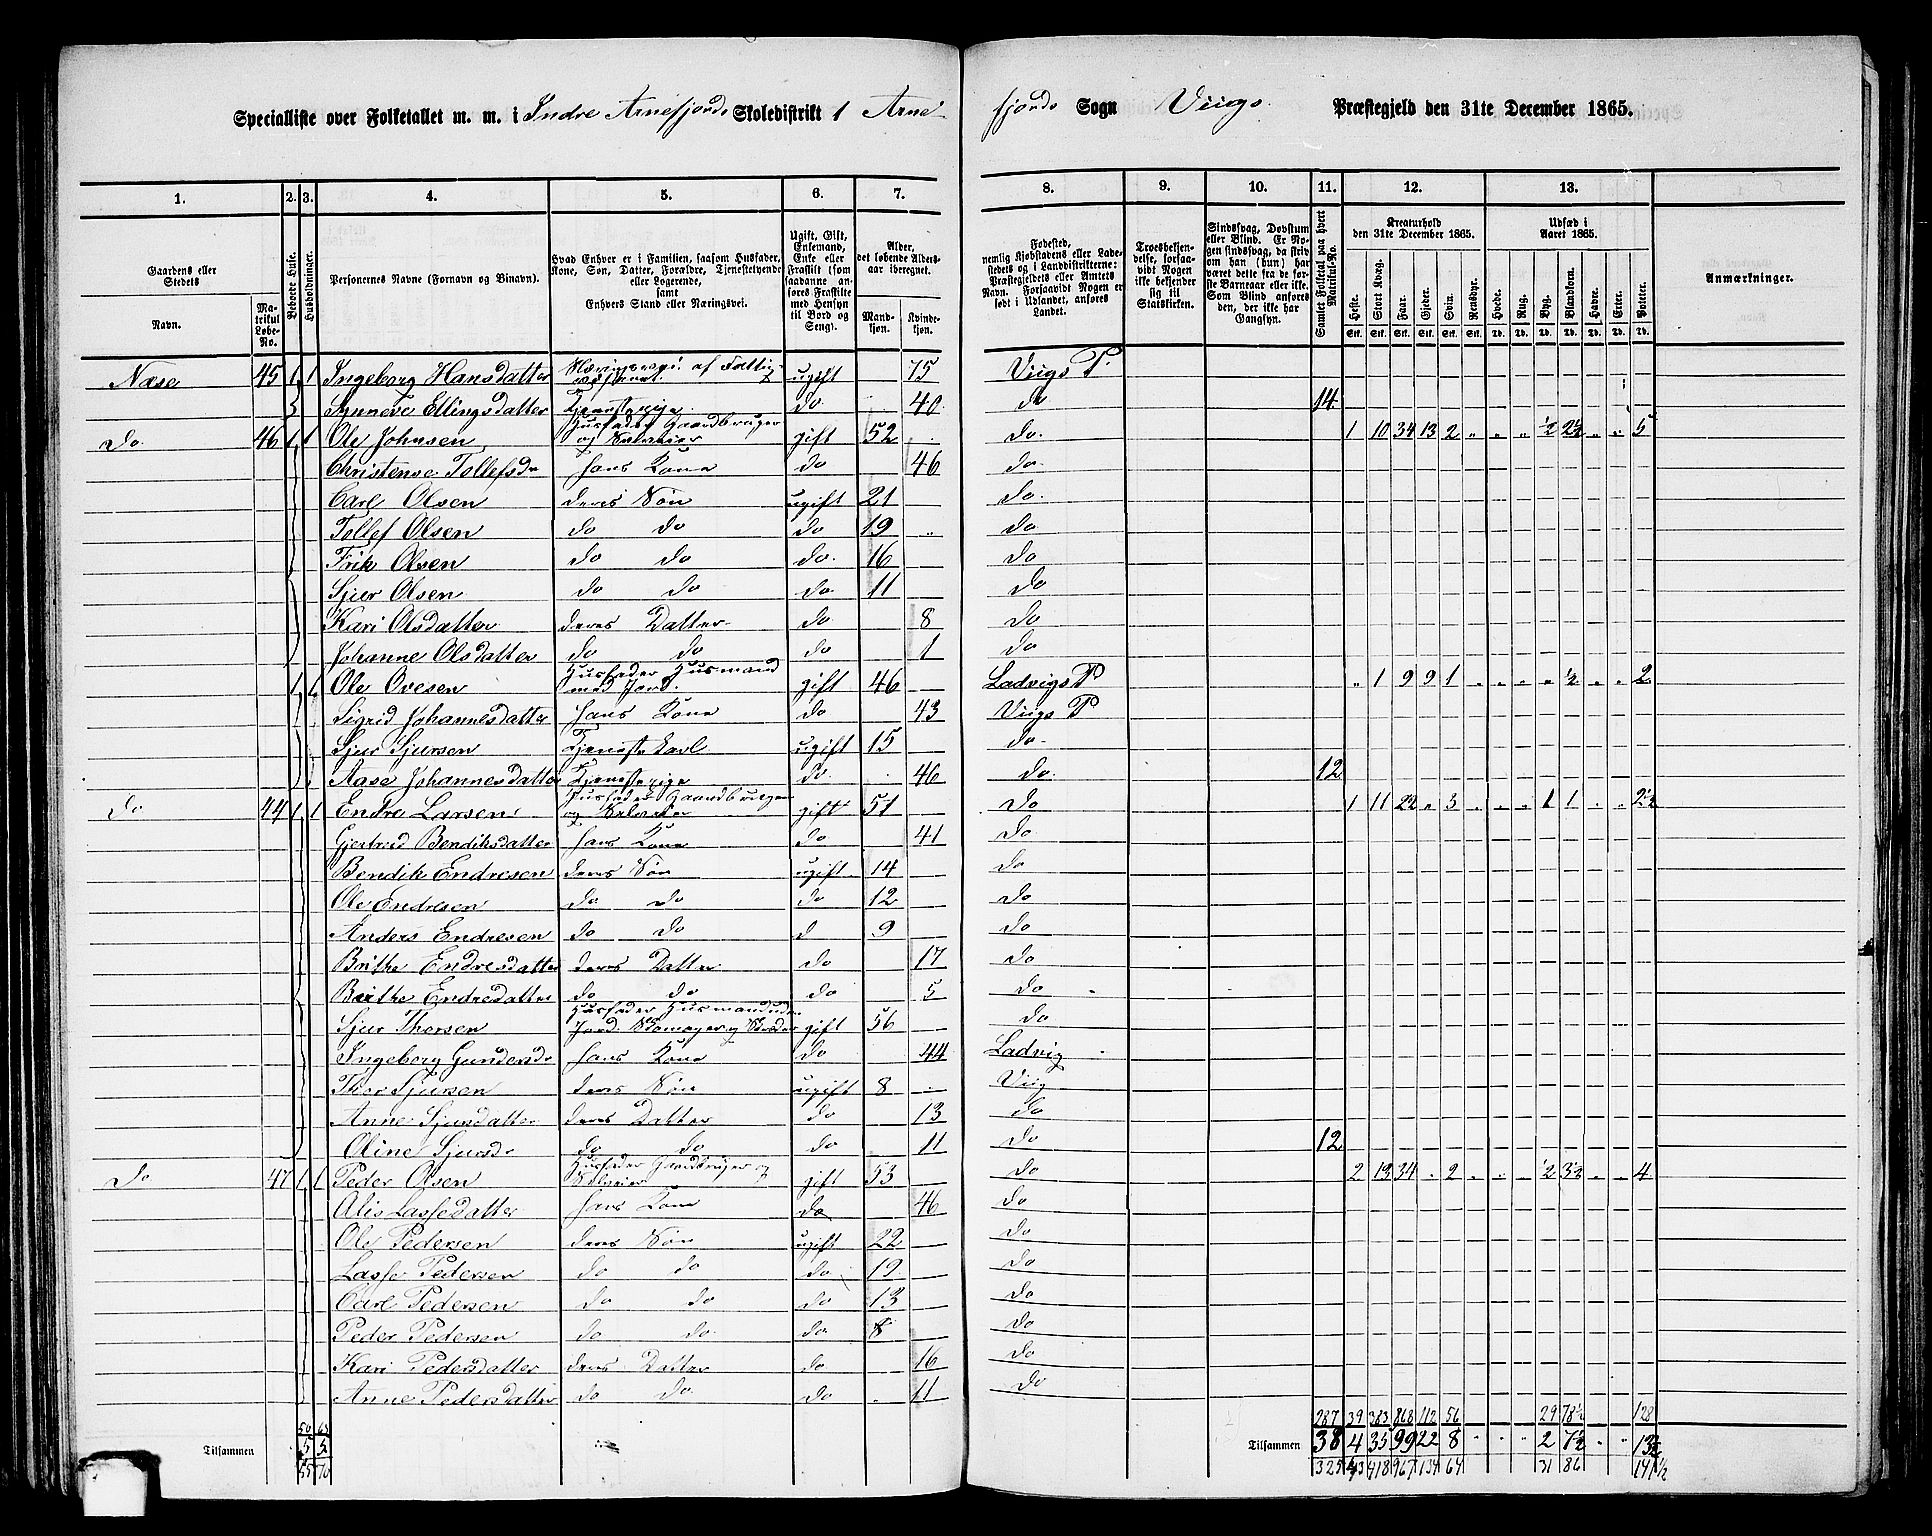 Specialliste over Folketallet m. m. i Indre Arnefjords Skoledistrikt 1 Arne-
fjords Sogn Viigs Præstegjeld den 31te December 1865.
1. 2. 3. 4. 5. 6. 7. 8. 9. 10. 11. 12. 13.
Gaardens eller Stedets
Navn.
Matrikul Løbe-No.
Beboede Huse.
Husholdninger.
Personernes Navne (Fornavn og Binavn).
Hvad Enhver er i Familien, saasom Husfader, Kone, Søn, Datter, Forældre, Tjenestetyende eller Logerende, samt Enhvers Stand eller Næringsvei.
Ugift, Gift, Enkemand, Enke eller Fraskilt (som saadanne anføres Fraskilte med Hensyn til Bord og Seng).
Alder, det løbende Alders-aar iberegnet.
Mandkjøn. Kvindekjøn.
Fødested, nemlig Kjøbstadens eller Ladestedets og i Landdistrikterne: Præstegjeldets eller Amtets Navn. Forsaavidt Nogen er født i Udlandet, anføres Landet.
Troesbekjendelse, forsaavidt Nogen ikke bekjender sig til Statskirken.
Sindssvag, Døvstum eller Blind. Er Nogen sindssvag, da skriv om han (hun) har været dette fra de første Barneaar eller ikke. Som Blind anføres den, der ikke har Gangsyn.
Samlet Folketal paa hvert Matrikul-No.
Kreaturhold den 31te December 1865.
Heste. Stort Kvæg. Faar. Gjeder. Svin. Rensdyr.
Udsæd i Aaret 1865.
Hvede. Rug. Byg. Blandkorn. Havre. Erter. Poteter.
Anmærkninger.
Næse 45 1 1 Ingeborg Hansdatter ugift 75 Viigs P.
Synneve Ellingsdatter Tjenestepige do 40 do 14
Do. 46 1 1 Ole Johnsen Husfader Gaardbruger og Selveier gift 52 do. 1 10 34 13 2 ½ 2½ 5
Christense Tollefsdr hans Kone do 46 do.
Carl Olsen deres Søn ugift 21 do.
Tollef Olsen do do do 19 do
Erik Olsen do do do. 16 do
Sjur Olsen do do do. 11 do
Kari Olsdatter deres Datter do 8 do
Johanne Olsdatter do do do 1 do
1 1 Ole Ovesen Husfader Husmand med Jord. gift 46 Ladvigs P 1 9 9 1 ½ 2
Sigrid Johannesdatter hans Kone do 43 Viigs P
Sjur Sjursen Tjenestekarl ugift 15 do.
Aase Johannesdatter Tjenestepige do. 46 do. 12
do 44 1 1 Endre Larsen Husfader Gaardbruger og Selveier gift 51 do 1 11 22 3 1 1 2½
Gjertrud Bendiksdatter hans Kone do 41 do
Bendik Endresen deres Søn ugift 14 do
Ole Endresen do do do 12 do
Anders Endresen do do d 9 do
Brithe Endresdatter deres Datter do 17 do
Brithe Endredatter do do do 5 do
Sjur Thorsen Husfader Husmand uden Jord. Skomager gift 56 do
Ingeborg Gundersdr hans Kone do 44 Ladvig
Thor Sjursen deres Søn ugift 8 Viig
Anne Sjursdatter deres Datter do 13 do
Oline Sjursdr do do do 11 do 12
do 47 1 1 Peder Olsen Husfader Gaardbruger og Selveier gift 53 do 2 13 34 2 ½ 3½ 4
Alis Lassedatter hans Kone do 46 do
Ole Pedersen deres Søn ugift 22 do
Lasse Pedersen do do do 19 do
Carl Pedersen do do do 13 do
Peder Pedersen do do do 8 do
Kari Pedersdatter deres Datter do 16 do
Anne Pedersdatter do do do 11 do
50 65 287 39 383 868 112 56 29 78½ 128
Tilsammen 5 5 Tilsammen 38 4 35 99 22 8 2 7½ 13½
55 70 325 43 418 967 134 64 31 86 141½